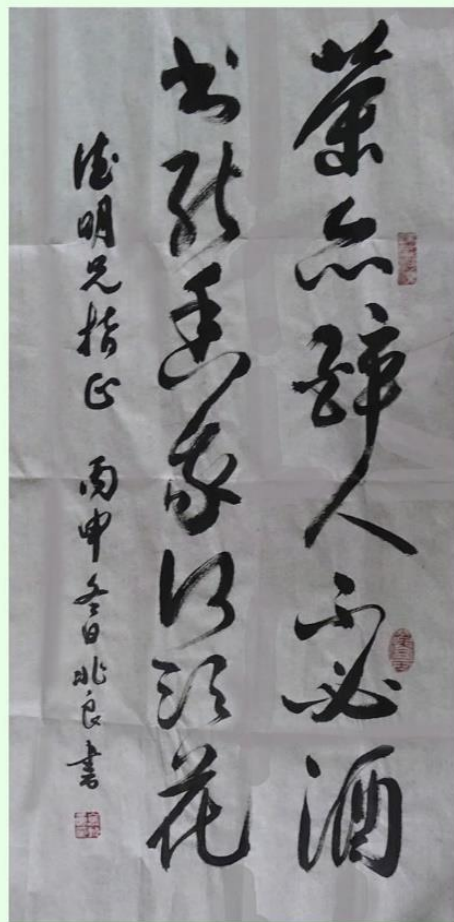 茶亦醉人不必酒
书能香我何须花
德明兄指正 丙申冬日兆良書